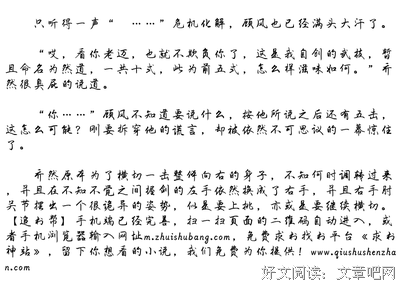 只听得一声“　……”危机化解，顾风也已经满头大汗了。
“哎，看你老迈，也就不欺负你了，这是我自创的武技，暂
且命名为然道，一共十式，此为前五式，怎么样滋味如何。”乔
然很臭屁的说道。
“你……”顾风不知道要说什么，按他所说之后还有五击，
这怎么可能？刚要拆穿他的谎言，却被依然不可思议的一幕惊住
了。
乔然原本为了横切一击整体向右的身子，不知何时调转过来
，并且在不知不觉之间握剑的左手依然换成了右手，并且右手肘
关节摆出一个很诡异的姿势，似是要上挑，亦或是要继续横切。
【追书帮】手机端已经完善，扫一扫页面的二维码自动进入，或
者手机浏览器输入网址m.zhuishubang.com，免费求书找书平台《求书
神站》，留下你想看的小说，我们免费为你提供！www.qiushushenzha
n.com
好文阅读：文章吧网